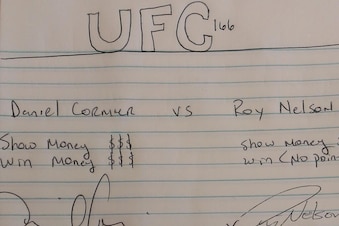 UFC 166
Daniel Cormier vs Roy Nelson
Show Money $$$ Show Money
Win Money $$$ win (No poin
Nelson